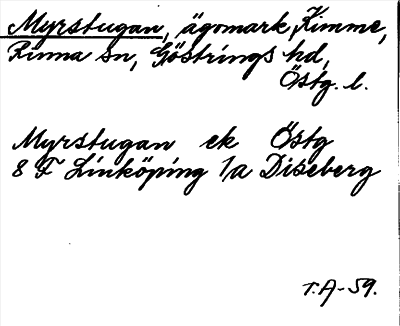 Myrstugan, ägomark, Kimme,
Rinna sn, Göstrings hd,
Östg. l.
Myrstugan ek Östg
8 F Linköping 1/a Diseberg
T.A-59.